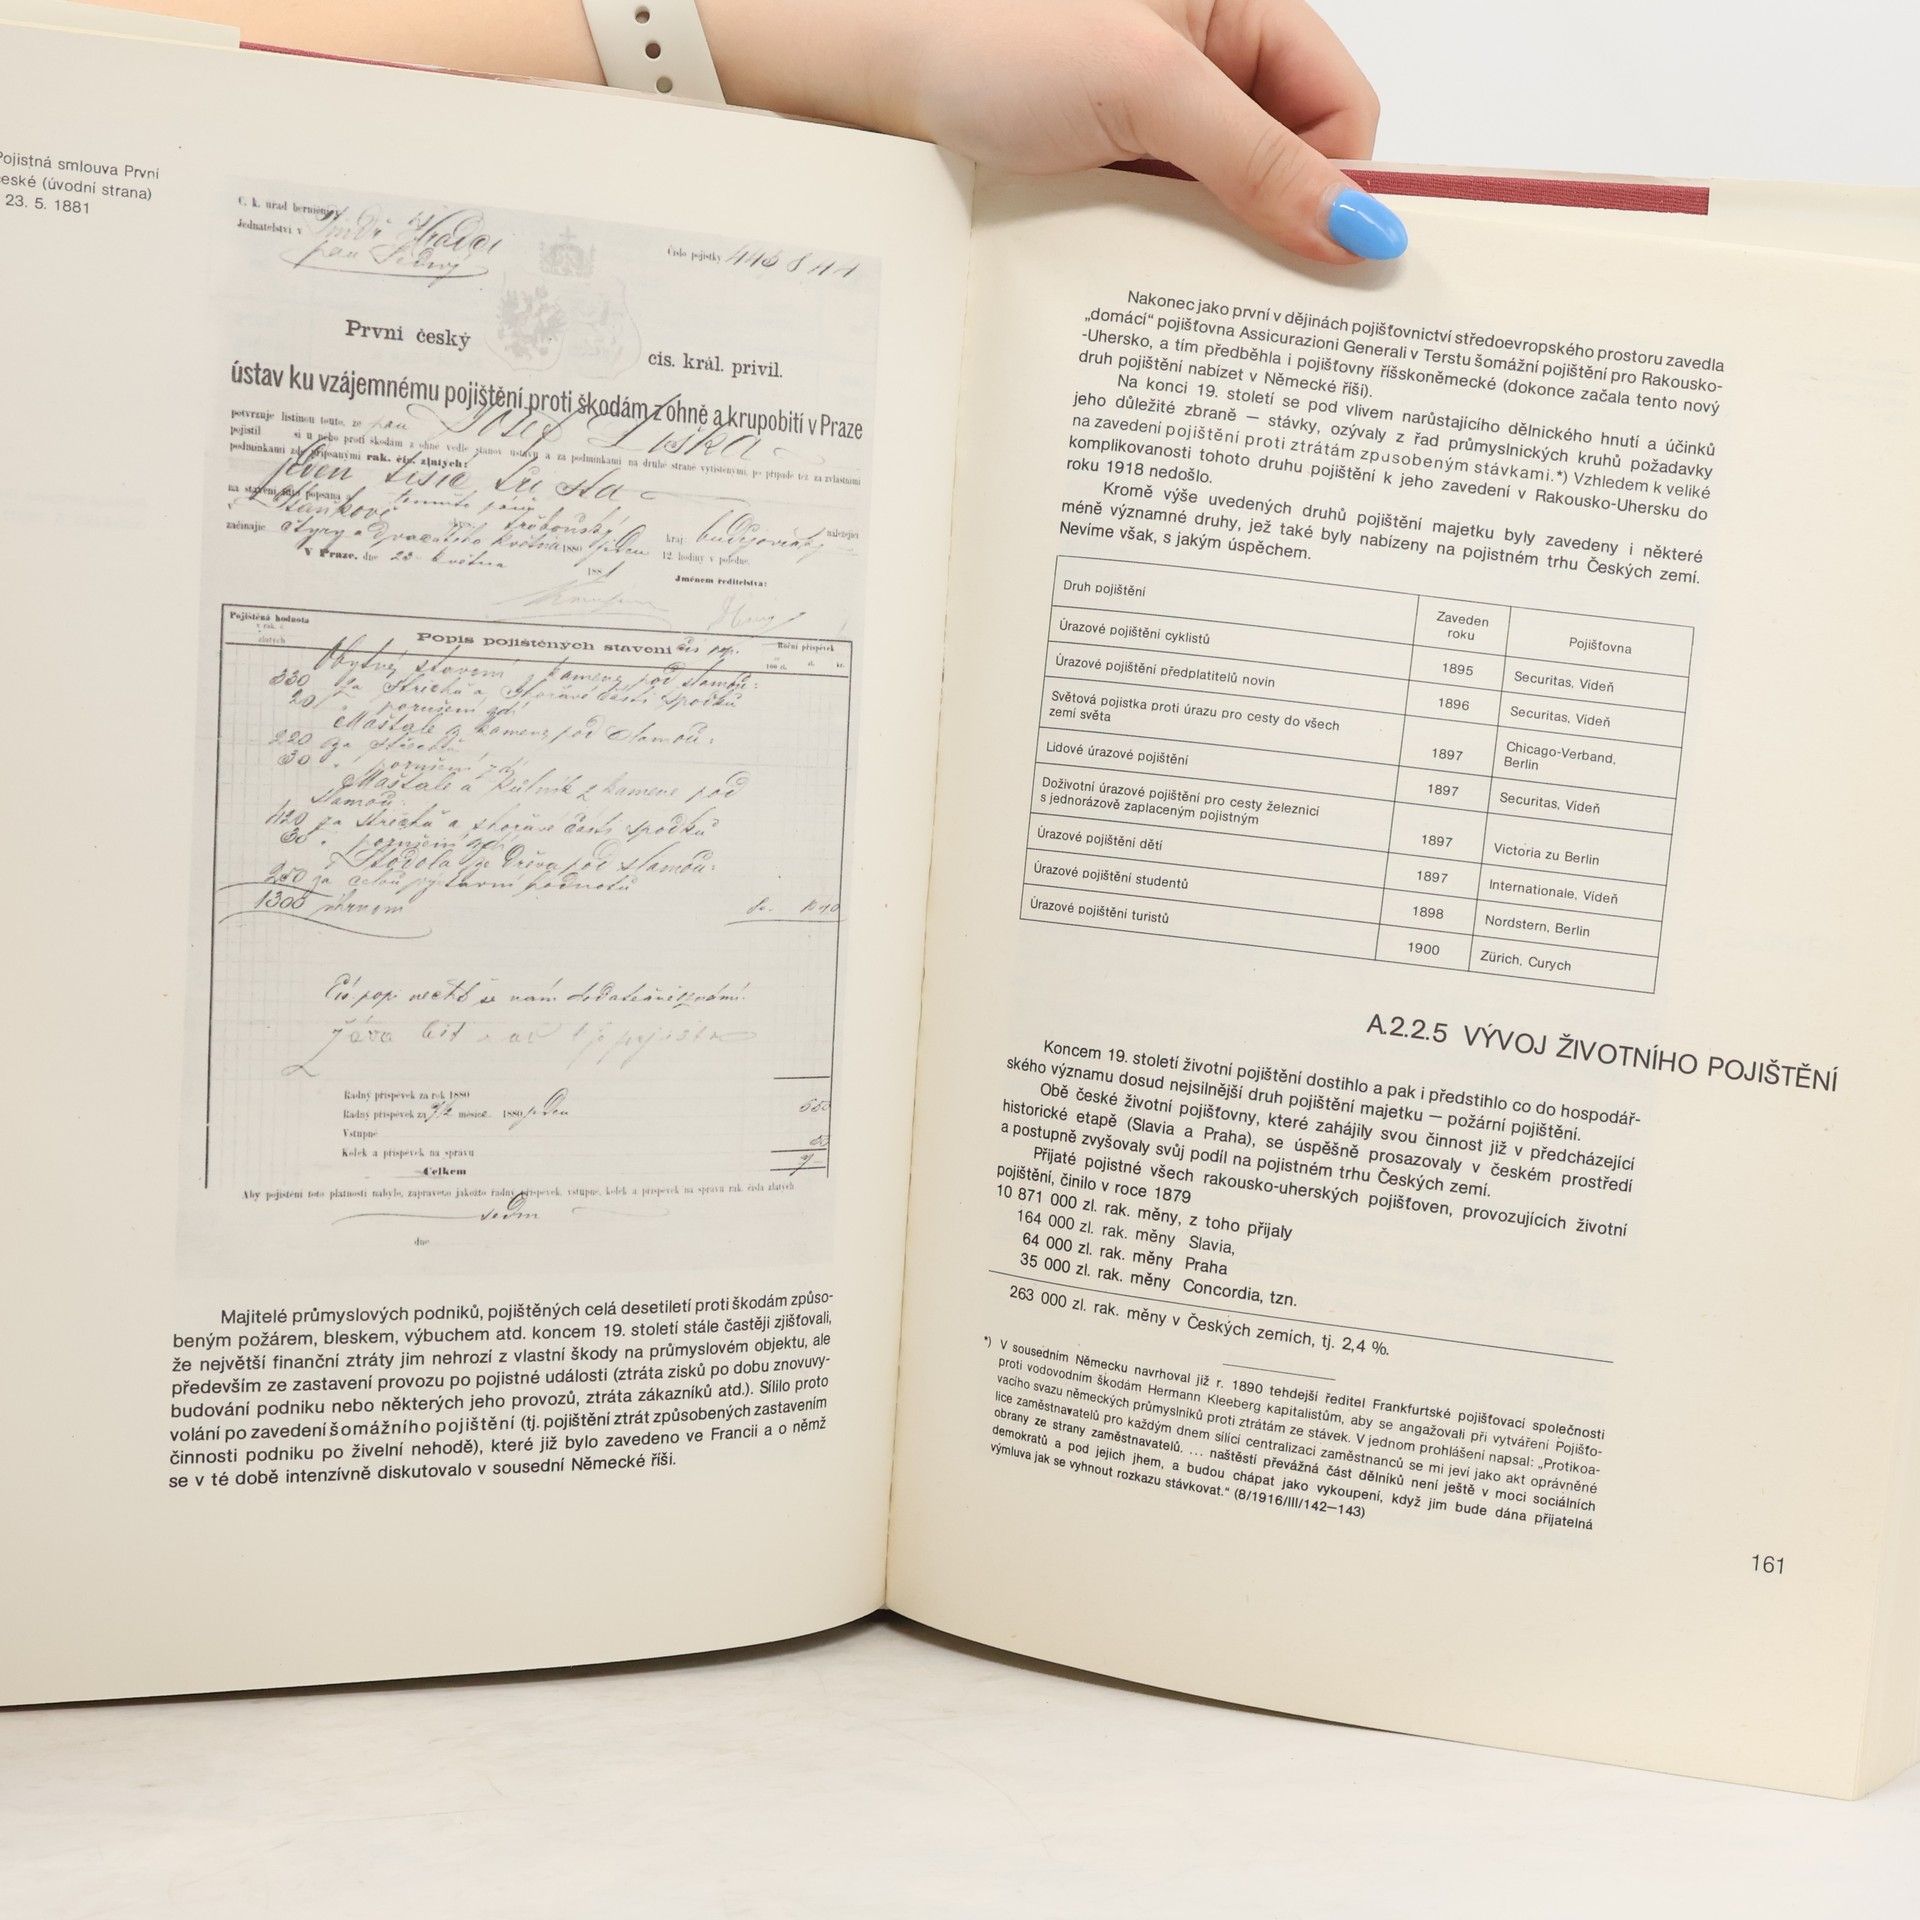 Pojistná smlouva První
české (úvodní strana)
23. 5. 1881
C. k. úřad berniční
Jednatelství v
Číslo pojistky
První český
cis. král. privil.
ústav ku vzájemnému pojištění proti škodám z ohně a krupobití v Praze
potvrzuje listinou touto, že pan Josef
pojistil si u něho proti škodám z ohně vedle stanov ústavu a za podmínkami na druhé straně vytištěnými, po případě též za zvláštními
podmínkami zde připsanými rak. čís. zlatých:
jeden tisíc tři sta
na stavení
kraj
začínajíc 12. hodiny v poledne.
V Praze, dne 23 května 1881
Jménem ředitelstva:
Pojištěná hodnota
zlatých
Popis pojištěných stavení
Roční příspěvek
330
20
220
30
420
30
250
1300 úhrnem
Řádný příspěvek za rok 1880
Řádný příspěvek za měsíce 1880
Vstupné
Kolek a příspěvek na správu
Celkem
Aby pojištění toto platnosti nabylo, zapraveto jakožto řádný příspěvek, vstupné, kolek a příspěvek na správu rak. čísla zlatých
sedm
dne
Majitelé průmyslových podniků, pojištěných celá desetiletí proti škodám způso-
beným požárem, bleskem, výbuchem atd. koncem 19. století stále častěji zjišťovali,
že největší finanční ztráty jim nehrozí z vlastní škody na průmyslovém objektu, ale
především ze zastavení provozu po pojistné události (ztráta zisků po dobu znovuvy-
budování podniku nebo některých jeho provozů, ztráta zákazníků atd.). Sílilo proto
volání po zavedení šomážního pojištění (tj. pojištění ztrát způsobených zastavením
činnosti podniku po živelní nehodě), které již bylo zavedeno ve Francii a o němž
se v té době intenzívně diskutovalo v sousední Německé říši.
Nakonec jako první v dějinách pojišťovnictví středoevropského prostoru zavedla
„domácí“ pojišťovna Assicurazioni Generali v Terstu šomážní pojištění pro Rakousko-
-Uhersko, a tím předběhla i pojišťovny říšskoněmecké (dokonce začala tento nový
druh pojištění nabízet v Německé říši).
Na konci 19. století se pod vlivem narůstajícího dělnického hnutí a účinků
jeho důležité zbraně — stávky, ozývaly z řad průmyslnických kruhů požadavky
na zavedení pojištění proti ztrátám způsobeným stávkami.*) Vzhledem k veliké
komplikovanosti tohoto druhu pojištění k jeho zavedení v Rakousko-Uhersku do
roku 1918 nedošlo.
Kromě výše uvedených druhů pojištění majetku byly zavedeny i některé
méně významné druhy, jež také byly nabízeny na pojistném trhu Českých zemí.
Nevíme však, s jakým úspěchem.
Druh pojištění Zaveden roku Pojišťovna
Úrazové pojištění cyklistů 1895 Securitas, Vídeň
Úrazové pojištění předplatitelů novin 1896 Securitas, Vídeň
Světová pojistka proti úrazu pro cesty do všech
zemí světa 1897 Chicago-Verband, Berlin
Lidové úrazové pojištění 1897 Securitas, Vídeň
Doživotní úrazové pojištění pro cesty železnicí
s jednorázově zaplaceným pojistným 1897 Victoria zu Berlin
Úrazové pojištění dětí 1897 Internationale, Vídeň
Úrazové pojištění studentů 1898 Nordstern, Berlin
Úrazové pojištění turistů 1900 Zürich, Curych
A.2.2.5 VÝVOJ ŽIVOTNÍHO POJIŠTĚNÍ
Koncem 19. století životní pojištění dostihlo a pak i předstihlo co do hospodář-
ského významu dosud nejsilnější druh pojištění majetku — požární pojištění.
Obě české životní pojišťovny, které zahájily svou činnost již v předcházející
historické etapě (Slavia a Praha), se úspěšně prosazovaly v českém prostředí
a postupně zvyšovaly svůj podíl na pojistném trhu Českých zemí.
Přijaté pojistné všech rakousko-uherských pojišťoven, provozujících životní
pojištění, činilo v roce 1879
10 871 000 zl. rak. měny, z toho přijaly
164 000 zl. rak. měny Slavia,
64 000 zl. rak. měny Praha
35 000 zl. rak. měny Concordia, tzn.
263 000 zl. rak. měny v Českých zemích, tj. 2,4 %.
*) V sousedním Německu navrhoval již r. 1890 tehdejší ředitel Frankfurtské pojišťovací společnosti
proti vodovodním škodám Hermann Kleeberg kapitalistům, aby se angažovali při vytváření Pojišťo-
vacího svazu německých průmyslníků proti ztrátám ze stávek. V jednom prohlášení napsal: „Protikoa-
lice zaměstnavatelů pro každým dnem sílící centralizaci zaměstnanců se mi jeví jako akt oprávněné
obrany ze strany zaměstnavatelů. ... naštěstí převážná část dělníků není ještě v moci sociálních
demokratů a pod jejich jhem, a budou chápat jako vykoupení, když jim bude dána přijatelná
výmluva jak se vyhnout rozkazu stávkovat.“ (8/1916/III/142—143)
161